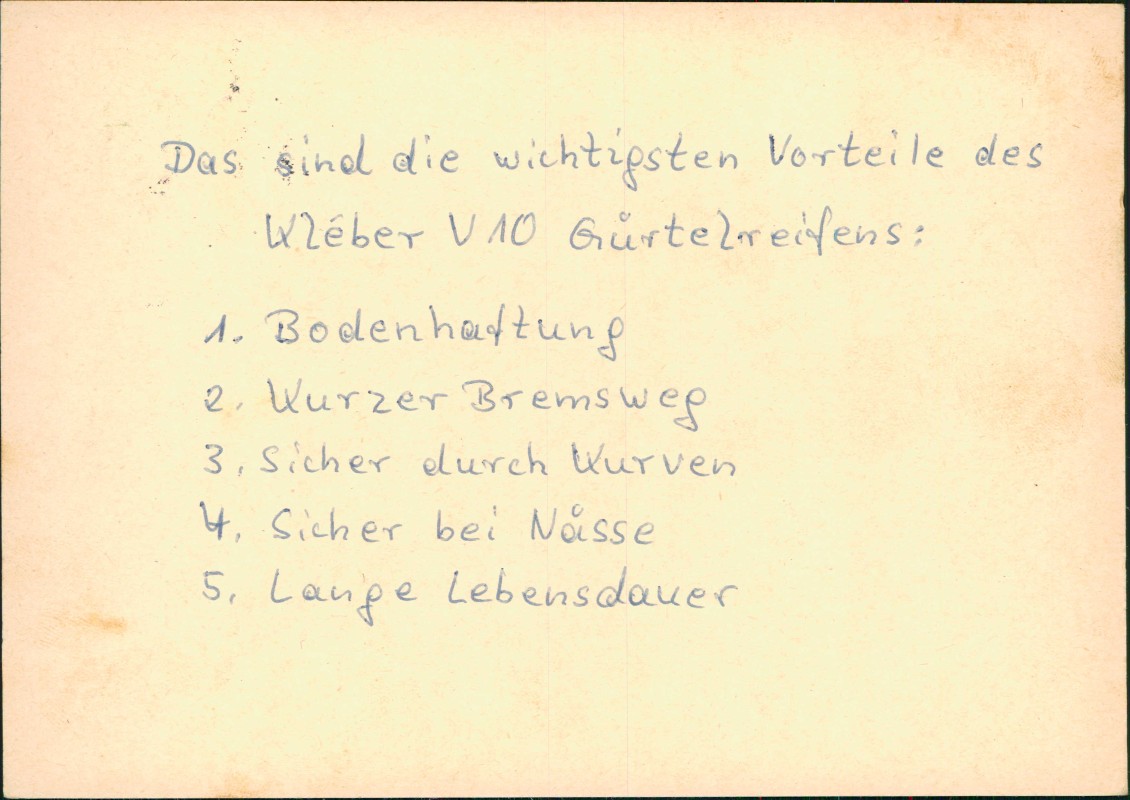 Das sind die wichtigsten Vorteile des
Kléber V10 Gürtelreifens:
1. Bodenhaftung
2. Kurzer Bremsweg
3. Sicher durch Kurven
4. Sicher bei Nässe
5. Lange Lebensdauer